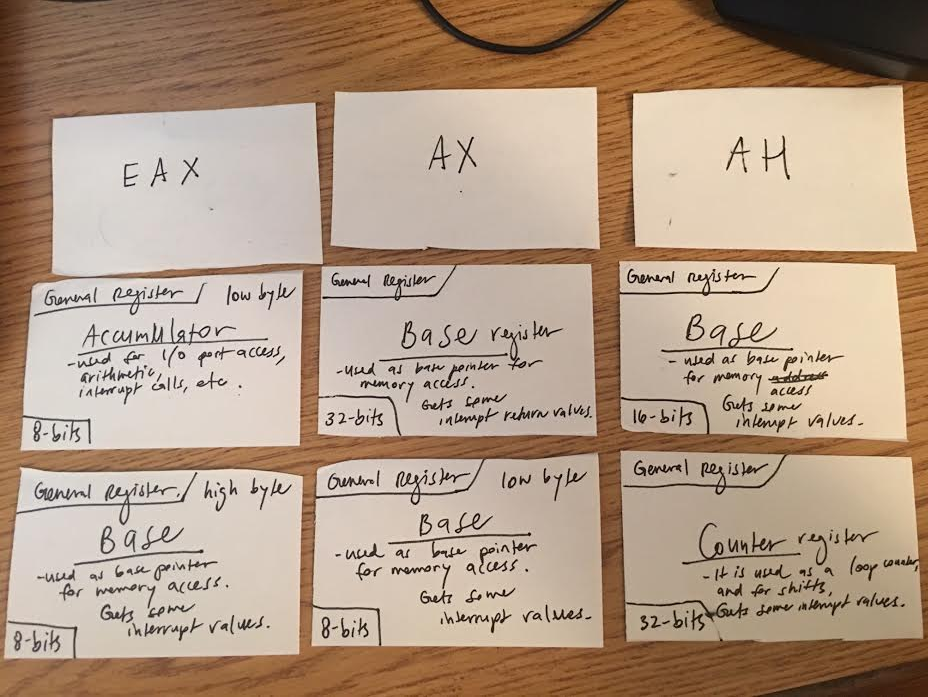 EAX
AX
AH
General Register low byte
Accumulator
-used for I/O port access,
arithmetic,
interrupt calls, etc.
8-bits
General Register
Base register
-used as base pointer for
memory access.
Gets some
interrupt return values.
32-bits
General Register
Base
- used as base pointer
for memory address
access
Gets some
interrupt values.
16-bits
General Register. high byte
Base
-used as base pointer
for memory access.
Gets some
interrupt values.
8-bits
General Register low byte
Base
-used as base pointer
for memory access.
Gets some
interrupt values.
8-bits
General Register
Counter register
- It is used as a loop counter,
and for shifts,
Gets some interrupt values.
32-bits